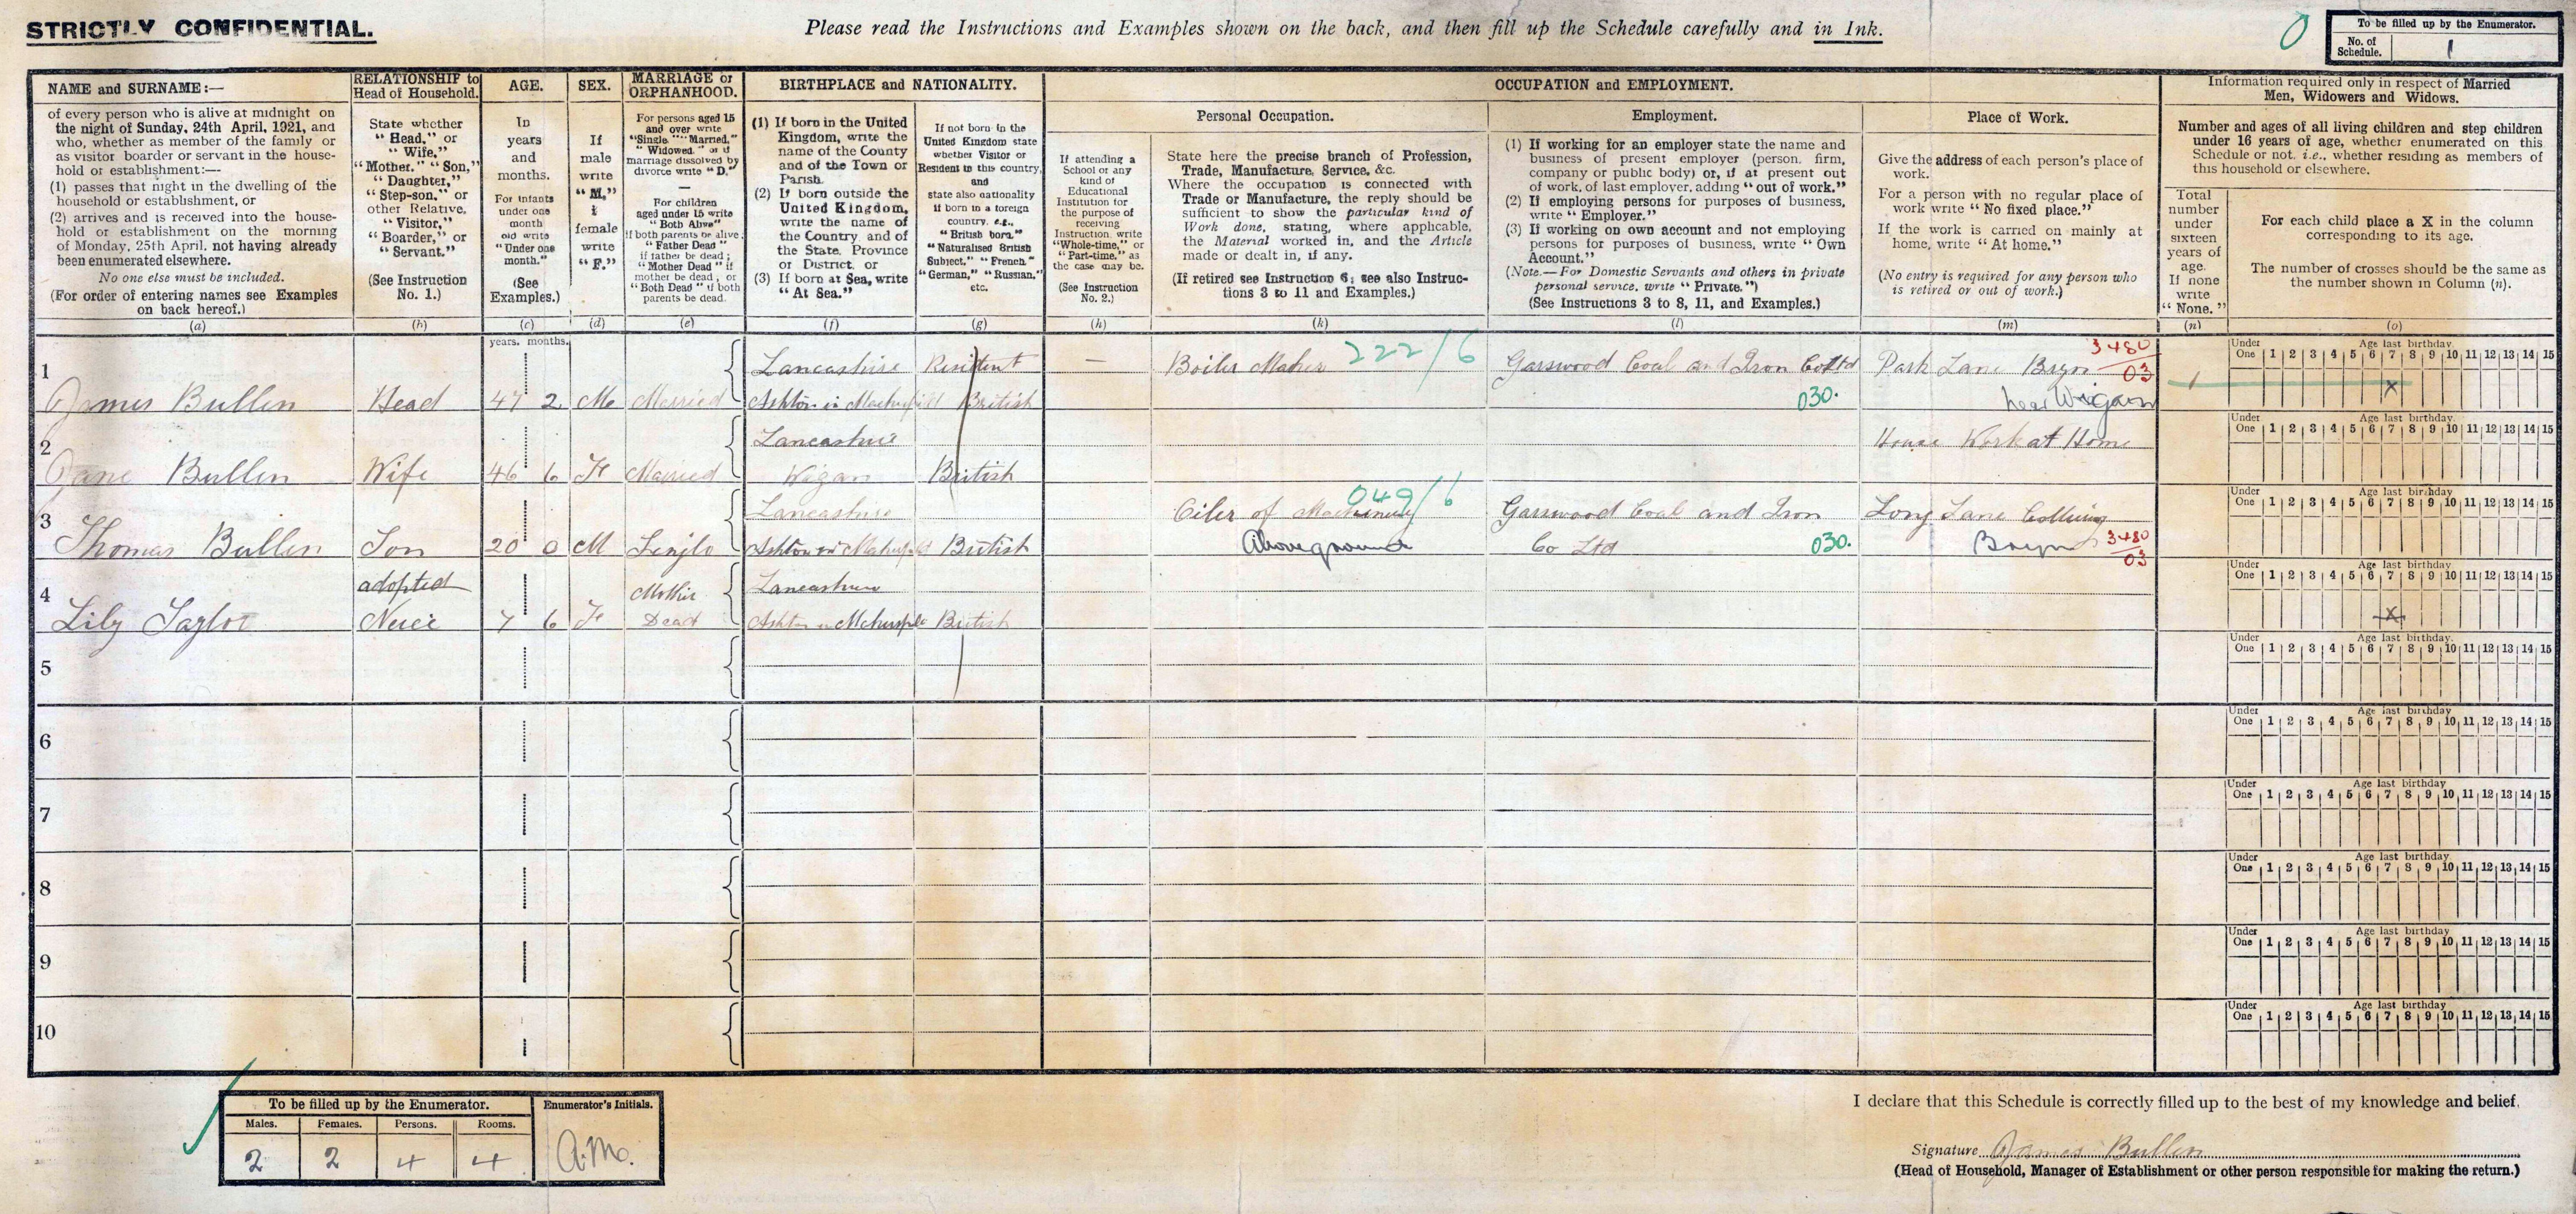 STRICTLY CONFIDENTIAL.
Please read the Instructions and Examples shown on the back, and then fill up the Schedule carefully and in Ink.
To be filled up by the Enumerator.
No. of Schedule. 1
NAME and SURNAME:—
of every person who is alive at midnight on
the night of Sunday, 24th April, 1921, and
who, whether as member of the family or
as visitor boarder or servant in the house-
hold or establishment:—
(1) passes that night in the dwelling of the
household or establishment, or
(2) arrives and is received into the house-
hold or establishment on the morning
of Monday, 25th April, not having already
been enumerated elsewhere.
No one else must be included.
(For order of entering names see Examples
on back hereof.)
(a)
RELATIONSHIP to
Head of Household.
State whether
"Head," or
"Wife,"
"Mother," "Son,"
"Daughter,"
"Step-son," or
other Relative,
"Visitor,"
"Boarder," or
"Servant."
(See Instruction
No. 1.)
(b)
AGE.
In
years
and
months.
For infants
under one
month
old write
"Under one
month."
(See
Examples.)
(c)
SEX.
If
male
write
"M,"
if
female
write
"F."
(d)
MARRIAGE or
ORPHANHOOD.
For persons aged 15
and over write
"Single," "Married,"
"Widowed," or if
marriage dissolved by
divorce write "D."
For children
aged under 15 write
"Both Alive"
if both parents be alive;
"Father Dead"
if father be dead;
"Mother Dead" if
mother be dead, or
"Both Dead" if both
parents be dead.
(e)
BIRTHPLACE and NATIONALITY.
(1) If born in the United
Kingdom, write the
name of the County
and of the Town or
Parish.
(2) If born outside the
United Kingdom,
write the name of
the Country and of
the State, Province
or District, or
(3) If born at Sea, write
"At Sea."
(f)
If not born in the
United Kingdom state
whether Visitor or
Resident in this country,
and
state also nationality
if born in a foreign
country. e.g.,
"British born,"
"Naturalised British
Subject," "French,"
"German," "Russian,"
etc.
(g)
OCCUPATION and EMPLOYMENT.
Personal Occupation.
If attending a
School or any
kind of
Educational
Institution for
the purpose of
receiving
Instruction, write
"Whole-time," or
"Part-time," as
the case may be.
(See Instruction
No. 2.)
(h)
State here the precise branch of Profession,
Trade, Manufacture, Service, &c.
Where the occupation is connected with
Trade or Manufacture, the reply should be
sufficient to show the particular kind of
Work done, stating, where applicable,
the Material worked in, and the Article
made or dealt in, if any.
(If retired see Instruction 6; see also Instruc-
tions 3 to 11 and Examples.)
(k)
Employment.
(1) If working for an employer state the name and
business of present employer (person, firm,
company or public body) or, if at present out
of work, of last employer, adding "out of work."
(2) If employing persons for purposes of business,
write "Employer."
(3) If working on own account and not employing
persons for purposes of business, write "Own
Account."
(Note.—For Domestic Servants and others in private
personal service, write "Private.")
(See Instructions 3 to 8, 11, and Examples.)
(l)
Place of Work.
Give the address of each person's place of
work.
For a person with no regular place of
work write "No fixed place."
If the work is carried on mainly at
home, write "At home."
(No entry is required for any person who
is retired or out of work.)
(m)
Information required only in respect of Married
Men, Widowers and Widows.
Number and ages of all living children and step children
under 16 years of age, whether enumerated on this
Schedule or not, i.e., whether residing as members of
this household or elsewhere.
Total
number
under
sixteen
years of
age.
If none
write
"None."
(n)
For each child place a X in the column
corresponding to its age.
The number of crosses should be the same as
the number shown in Column (n).
(o)
years. months.
1 Lancashire Resident — Boiler Maker 222/6 Garswood Coal and Iron Co Ltd Park Lane Bryn 3480/03
James Bullen Head 47 2 M Married Ashton in Makerfield British 030. near Wigan 1 X
Under One 1 2 3 4 5 6 7 8 9 10 11 12 13 14 15
Age last birthday
2 Lancashire House Work at Home
Jane Bullen Wife 46 6 F Married Wigan British
Under One 1 2 3 4 5 6 7 8 9 10 11 12 13 14 15
Age last birthday
3 Lancashire Oiler of Machinery 049/6 Garswood Coal and Iron Long Lane Colliery
Thomas Bullen Son 20 0 M Single Ashton in Makerfield British Aboveground Co Ltd 030. Bryn 3480/03
Under One 1 2 3 4 5 6 7 8 9 10 11 12 13 14 15
Age last birthday
4 adopted Mother Lancashire
Lily Taylor Neice 7 6 F Dead Ashton in Makerfield British X
Under One 1 2 3 4 5 6 7 8 9 10 11 12 13 14 15
Age last birthday
5
Under One 1 2 3 4 5 6 7 8 9 10 11 12 13 14 15
Age last birthday.
6
Under One 1 2 3 4 5 6 7 8 9 10 11 12 13 14 15
Age last birthday
7
Under One 1 2 3 4 5 6 7 8 9 10 11 12 13 14 15
Age last birthday
8
Under One 1 2 3 4 5 6 7 8 9 10 11 12 13 14 15
Age last birthday
9
Under One 1 2 3 4 5 6 7 8 9 10 11 12 13 14 15
Age last birthday
10
Under One 1 2 3 4 5 6 7 8 9 10 11 12 13 14 15
Age last birthday
To be filled up by the Enumerator. Enumerator's Initials.
Males. Females. Persons. Rooms.
2 2 4 4 A.M.
I declare that this Schedule is correctly filled up to the best of my knowledge and belief.
Signature James Bullen
(Head of Household, Manager of Establishment or other person responsible for making the return.)